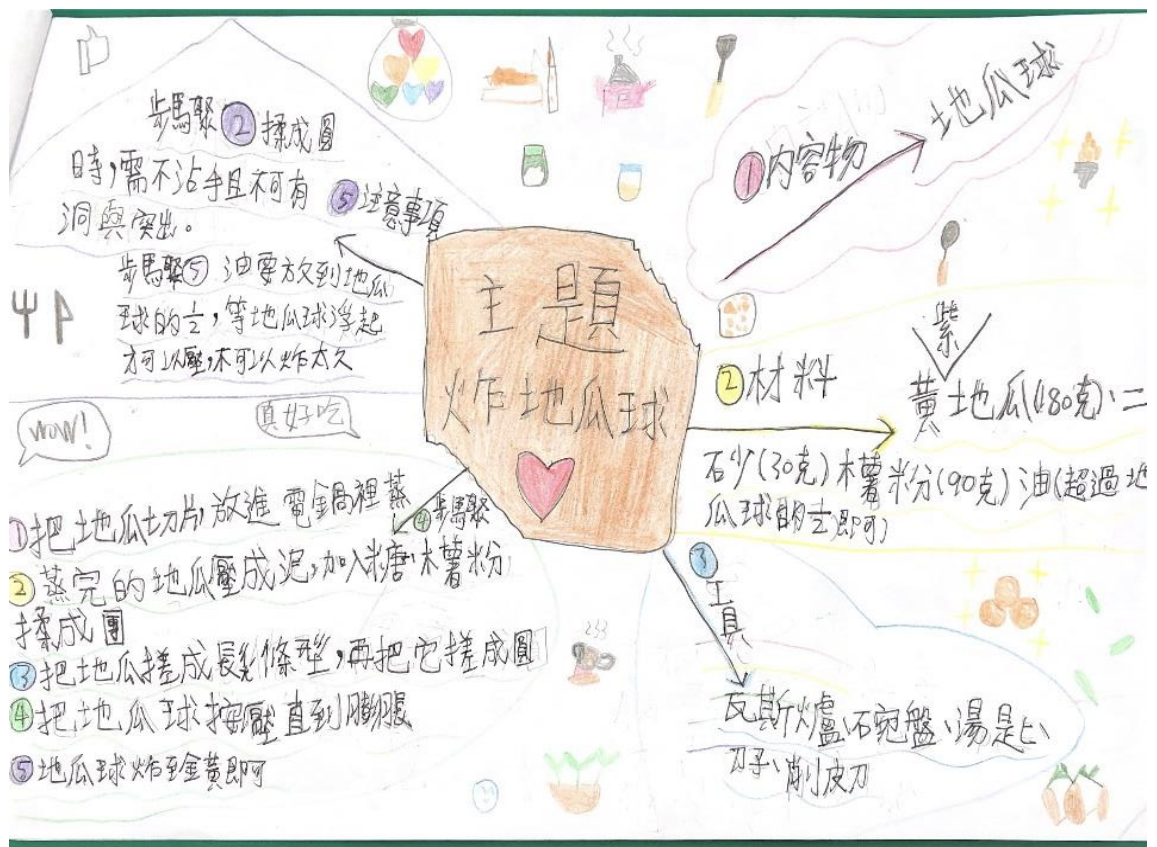 主題
炸地瓜球
①內容物
地瓜球
②材料
紫
黃地瓜(480克)、二
砂(30克)木薯粉(90克)油(超過地
瓜球的½即可)
③工具
瓦斯爐、碗盤、湯匙、
刀子、削皮刀
④步驟
①把地瓜切片,放進電鍋裡蒸
②蒸完的地瓜壓成泥,加入糖、木薯粉,
揉成團
③把地瓜搓成長條型,再把它搓成圓
④把地瓜球按壓直到膨脹
⑤地瓜球炸至金黃即可
⑤注意事項
步驟②揉成圓
時,需不沾手且不可有
洞與突出。
步驟⑤油要放到地瓜
球的½,等地瓜球浮起
才可以壓,不可以炸太久
WOW!
真好吃